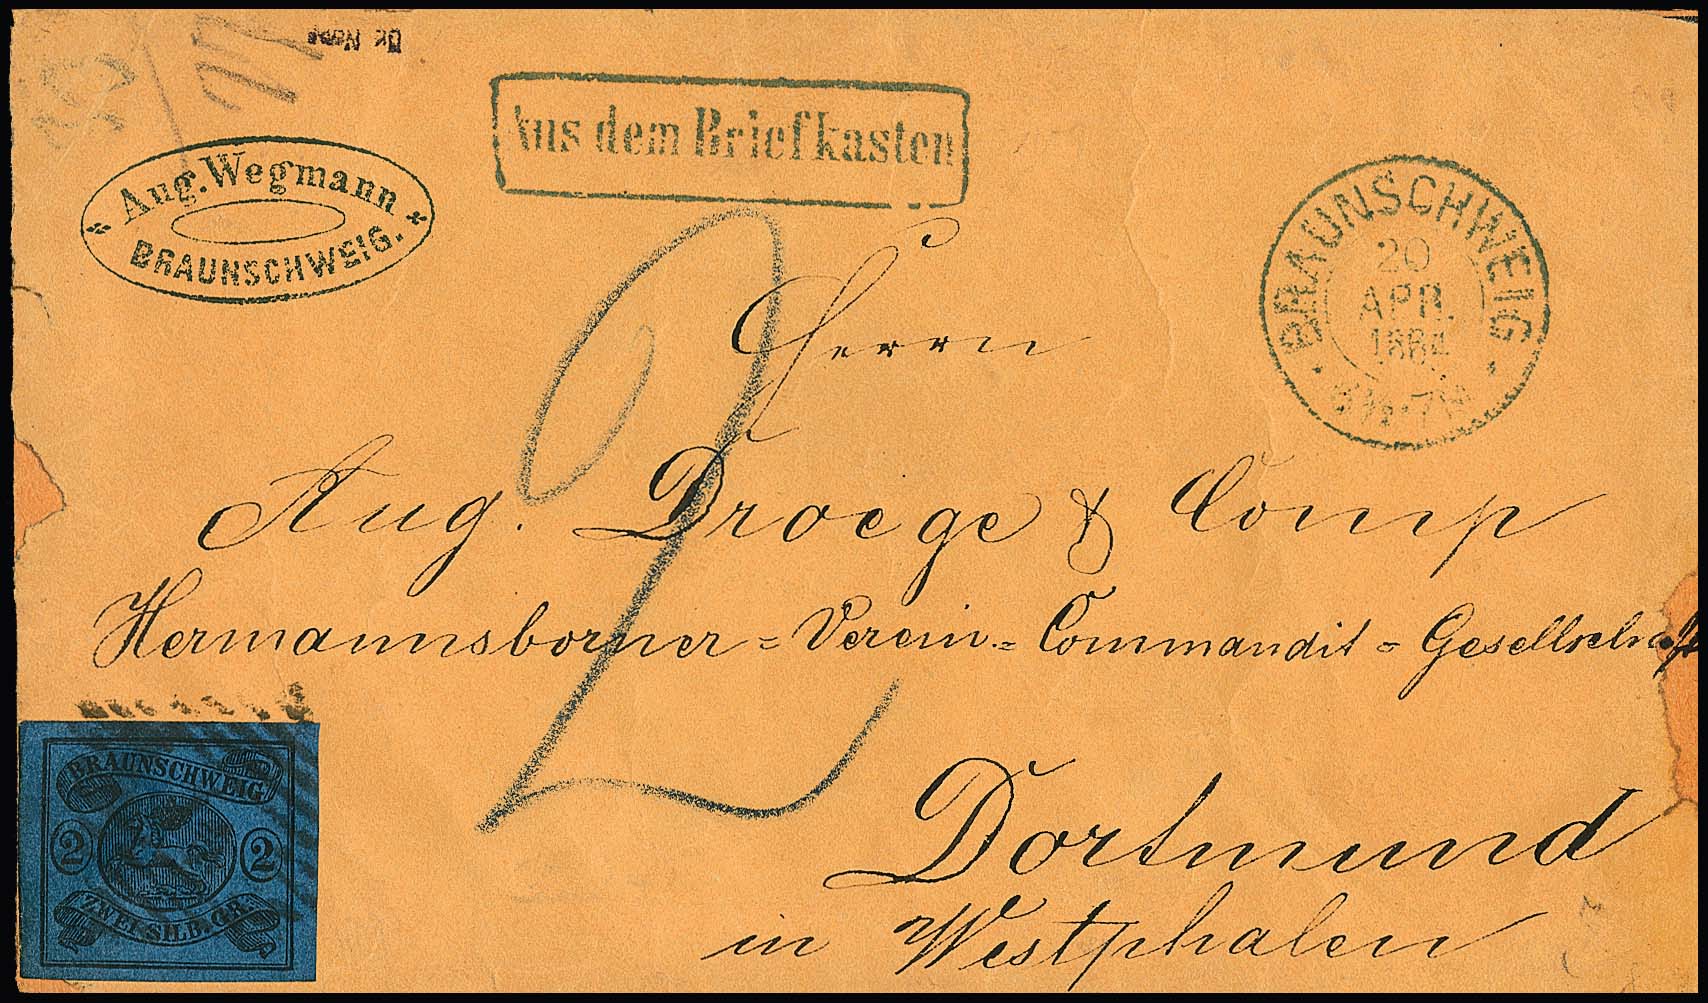 Aus dem Briefkasten
Aug. Wegmann
BRAUNSCHWEIG.
BRAUNSCHWEIG
20
APR.
1864
2
Herrn
Aug. Droege & Comp
Hermannsborner = Verein = Commandit = Gesellschaft
Dortmund
in Westphalen
BRAUNSCHWEIG
2 2
ZWEI SILB. GR.